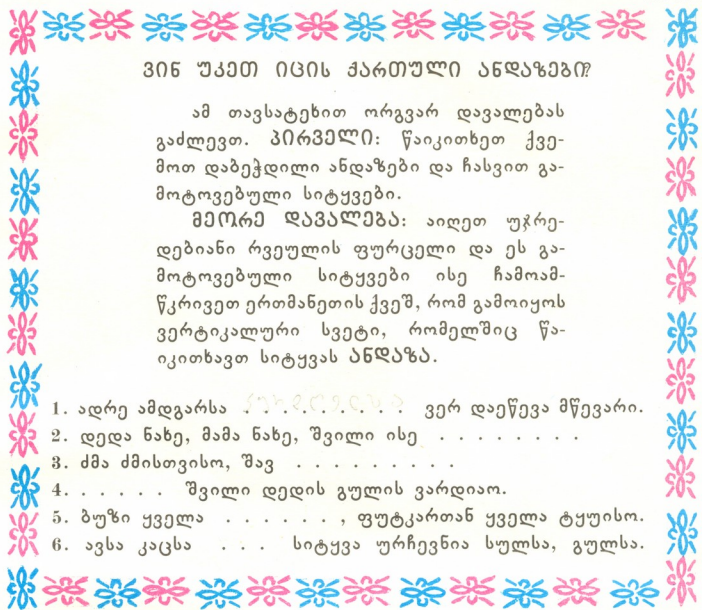 ვინ უკეთ იცის ქართული ანდაზები?
ამ თავსატეხით ორგვარ დავალებას
გაძლევთ. პირველი: წაიკითხეთ ქვე-
მოთ დაბეჭდილი ანდაზები და ჩასვით გა-
მოტოვებული სიტყვები.
მეორე დავალება: აიღეთ უჯრე-
დებიანი რვეულის ფურცელი და ეს გა-
მოტოვებული სიტყვები ისე ჩამოამ-
წკრივეთ ერთმანეთის ქვეშ, რომ გამოიყოს
ვერტიკალური სვეტი, რომელშიც წა-
იკითხავთ სიტყვას ანდაზა.
1. ადრე ამდგარსა . . . . . . . . . ვერ დაეწევა მწევარი.
2. დედა ნახე, მამა ნახე, შვილი ისე . . . . . . . .
3. ძმა ძმისთვისო, შავ . . . . . . . . .
4. . . . . . . შვილი დედის გულის ვარდიაო.
5. ბუზი ყველა . . . . . . . , ფუტკართან ყველა ტყუისო.
6. ავსა კაცსა . . . სიტყვა ურჩევნია სულსა, გულსა.